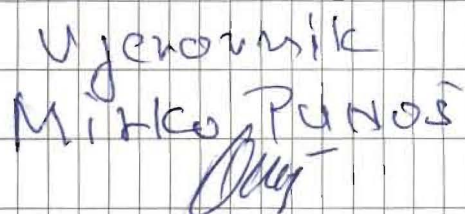 Vjerovnik
Mirko Punoš